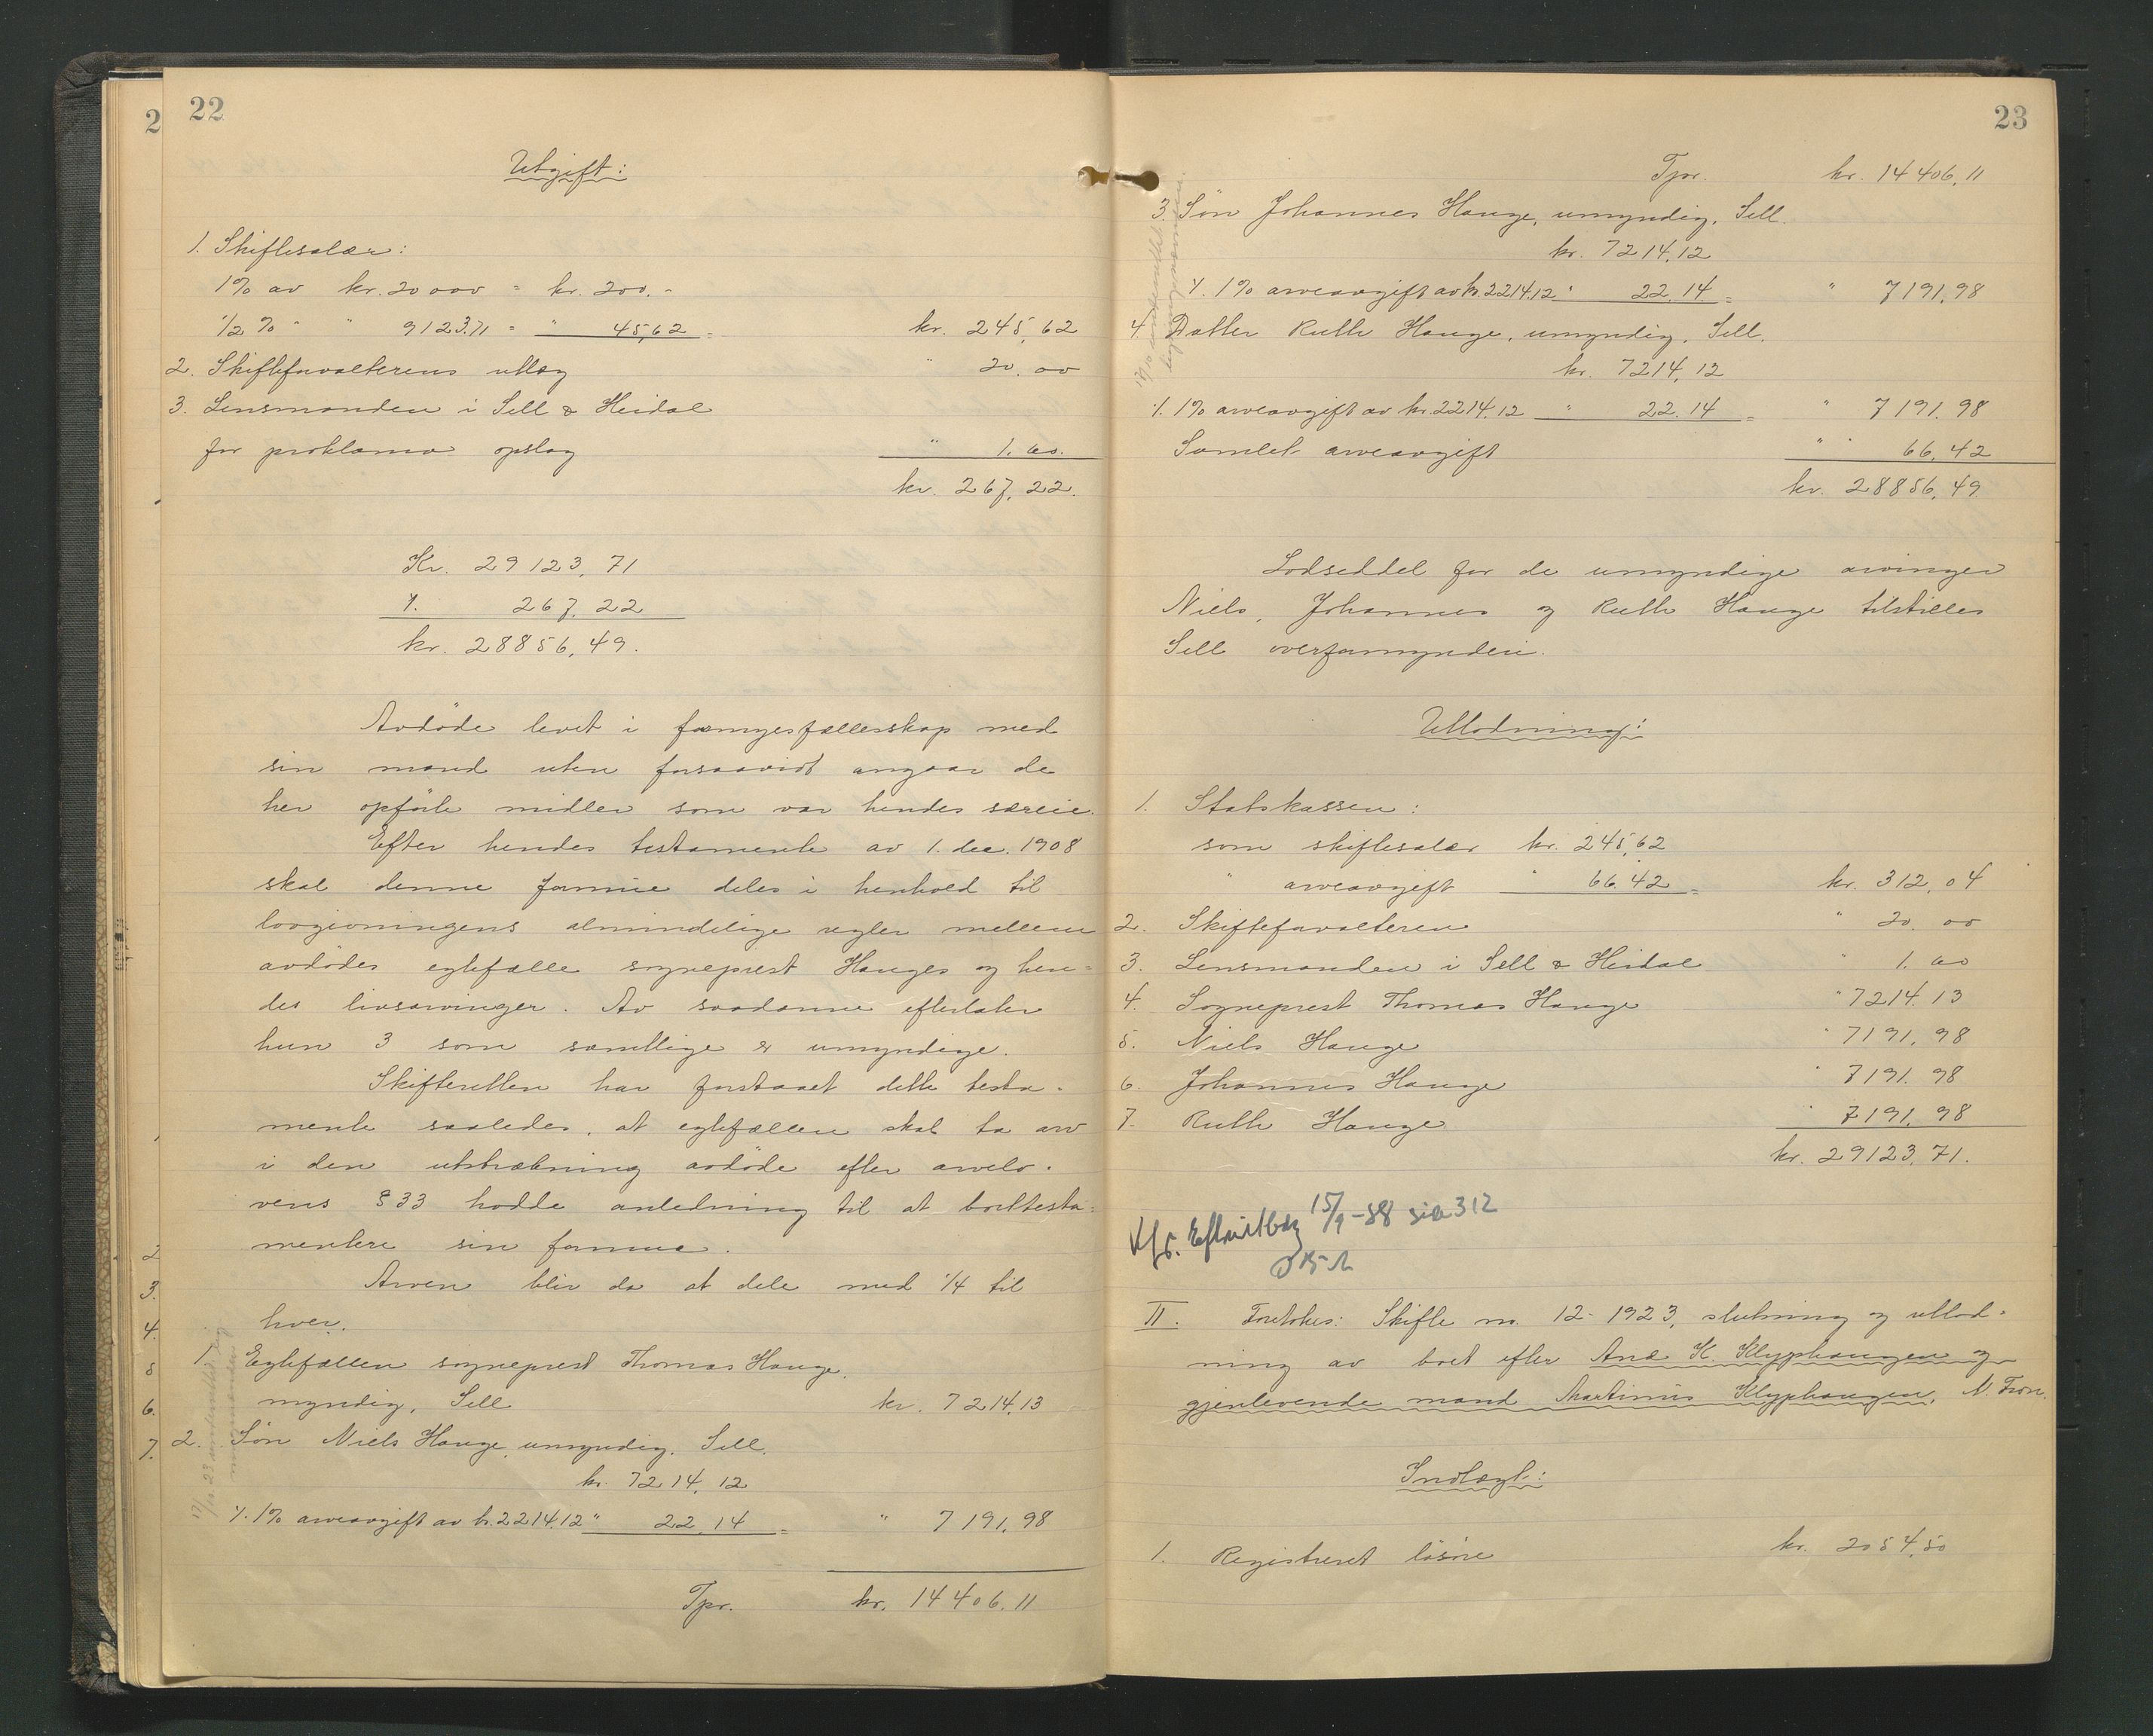 22
Utgift:
1. Skiftesalær:
1% av kr. 20 000 = kr. 200.-
1/2 % " " 9123.71 = " 45,62 = kr. 245,62
2. Skifteforvalterens utlæg " 20.00
3. Lensmanden i Sell & Heidal
for proklama opslag " 1.60.
kr. 267,22.
Kr. 29123,71
÷ 267,22
kr. 28856,49.
Avdøde levet i formuesfællesskap med
sin mand uten forsaavidt angaar de
her opførte midler som var hendes særeie.
Efter hendes testamente av 1. dec. 1908
skal denne formue deles i henhold til
lovgivningens almindelige regler mellem
avdødes egtefælle sogneprest Hauges og hen-
des livsarvinger. Av saadanne efterlater
hun 3 som samtlige er umyndige.
Skifteretten har forstaaet dette testa-
mente saaledes, at egtefællen skal ta arv
i den utstrækning avdøde efter arvelo-
vens § 33 hadde anledning til at borttesta-
mentere sin formue.
Arven blir da at dele med 1/4 til
hver.
1. Egtefællen sogneprest Thomas Hauge,
myndig, Sell kr. 7214,13
2. Søn Niels Hauge, umyndig, Sell.
kr. 7214,12
÷ 1% arveavgift av kr. 2214,12 " 22.14 = " 7191,98
Tpr. kr. 14406.11
23
Tpr. kr. 14406,11
3. Søn Johannes Hauge, umyndig, Sell.
kr. 7214,12
÷ 1% arveavgift av kr. 2214,12 " 22.14 = " 7191,98
4. Datter Ruth Hauge, umyndig, Sell.
kr. 7214,12
÷ 1% arveavgift av kr. 2214,12 " 22.14 = " 7191.98
Samlet arveavgift " 66,42
kr. 28856,49
Lodseddel for de umyndige arvinger
Niels, Johannes og Ruth Hauge tilstilles
Sell overformynderi.
Utlodning:
1. Statskassen:
som skiftesalær kr. 245,62
" arveavgift " 66.42 = kr. 312,04
2. Skifteforvalteren " 20.00
3. Lensmanden i Sell & Heidal " 1.60
4. Sogneprest Thomas Hauge " 7214.13
5. Niels Hauge " 7191,98
6. Johannes Hauge " 7191.98
7. Ruth Hauge " 7191,98
kr. 29123,71.
15/9-88 sia 312
II. Foretokes: Skifte no. 12-1923, slutning og utlod-
ning av boet efter Ane K. Klyphaugen og
gjenlevende mand Martinus Klyphaugen, N. Fron.
Indtægt:
1. Registreret løsøre kr. 2054,50